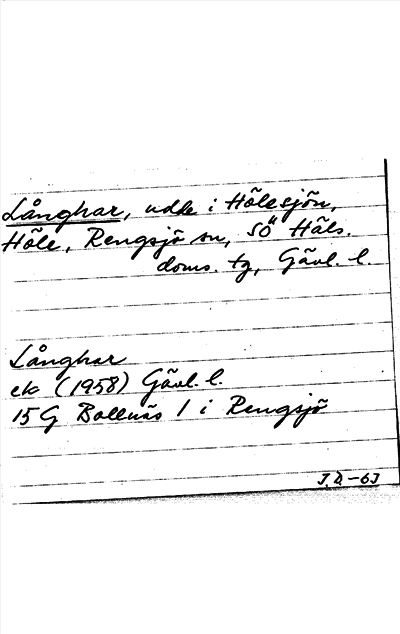 Långhar, udde i Hölesjön,
Höle, Rengsjö sn, SÖ Häls.
doms. tg, Gävl. l.
Långhar
ek (1958) Gävl. l.
15 G Bollnäs 1 i Rengsjö
J.D.-63